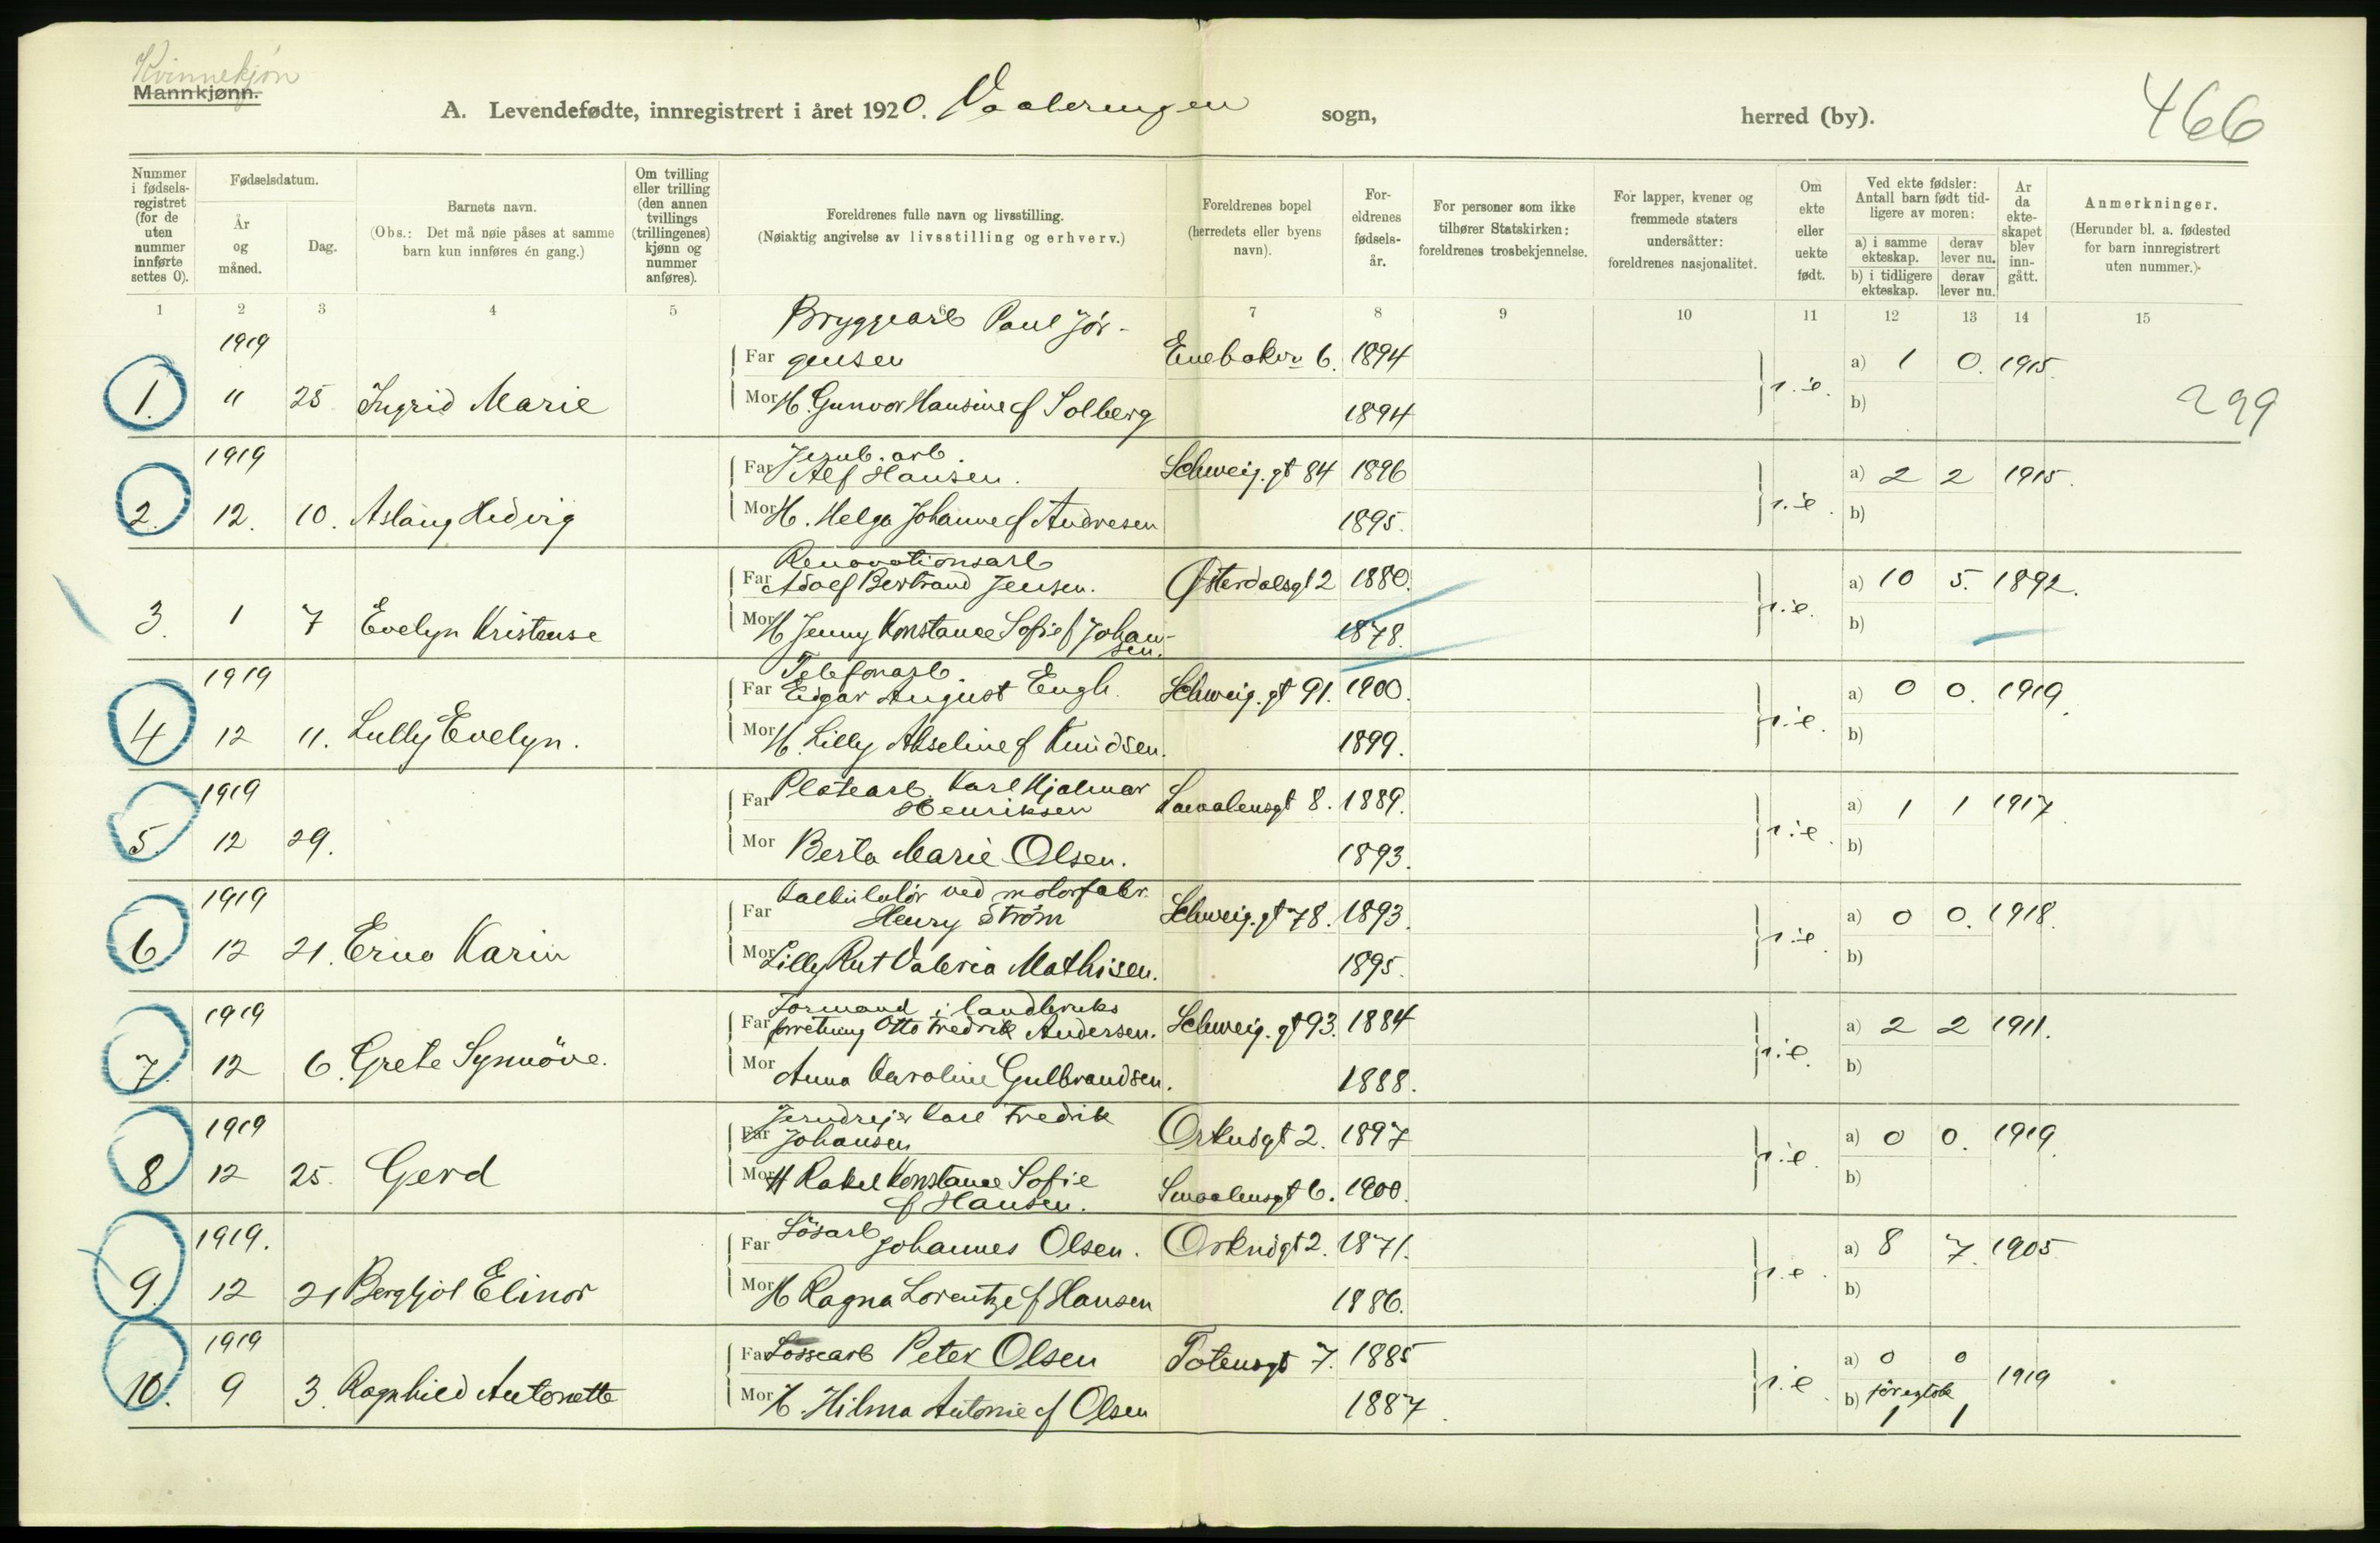 Kvinnekjøn
Mannkjønn.
A. Levendefødte, innregistrert i året 1920. Vaaleringen sogn, herred (by).
466
Nummer i fødsels-registret (for de uten nummer innførte settes 0).
Fødselsdatum.
År og måned.
Dag.
Barnets navn.
(Obs.: Det må nøie påses at samme barn kun innføres én gang.)
Om tvilling eller trilling (den annen tvillings (trillingenes) kjønn og nummer anføres).
Foreldrenes fulle navn og livsstilling.
(Nøiaktig angivelse av livsstilling og erhverv.)
Foreldrenes bopel (herredets eller byens navn).
For-eldrenes fødsels-år.
For personer som ikke tilhører Statskirken: foreldrenes trosbekjennelse.
For lapper, kvener og fremmede staters undersåtter: foreldrenes nasjonalitet.
Om ekte eller uekte født.
Ved ekte fødsler: Antall barn født tid-ligere av moren:
a) i samme ekteskap.
derav lever nu.
b) i tidligere ekteskap.
derav lever nu.
År da ekte-skapet blev inn-gått.
Anmerkninger.
(Herunder bl. a. fødested for barn innregistrert uten nummer.)
1 2 3 4 5 6 7 8 9 10 11 12 13 14 15
Bryggearb Paul Jør-
1919 Far gensen Enebakv. 6. 1894 a) 1 0. 1915.
1. 11 25 Ingrid Marie Mor H. Gunvor Hansine f Solberg 1894 b)
299
1919 Jernb. arb.
Far Alf Hansen. Schweig. gt 84 1896 a) 2 2 1915.
2. 12. 10. Aslaug Hedvig Mor H. Helga Johanne f Andresen 1895. b)
Renovationsarb
Far Adolf Bertrand Jensen. Østerdalsgt 2 1880. a) 10 5. 1892.
3. 1 7 Evelyn Kristense Mor H Jenny Konstance Sofie f Johan-
sen. 1878. b)
1919 Telefonarb.
Far Edgar August Engh. Schweig. gt 91. 1900. a) 0 0. 1919.
4 12 11. Lully Evelyn. Mor H. Lilly Akseline f Knudsen. 1899. b)
1919 Far Platearb. Karl Hjalmar
Henriksen Smaalensgt 8. 1889. a) 1 1 1917
5. 12 29. Mor Berta Marie Olsen. 1893. b)
1919 Kalkulatør ved motorfabr.
Far Henry Strøm Schweig. gt 78. 1893. a) 0 0. 1918.
6 12 21. Erna Karin Mor Lilly Rut Valeria Mathisen. 1895. b)
1919 Formand i landbruks
Far forretning Otto Fredrik Andersen. Schweig. gt 93. 1884 a) 2 2 1911.
7. 12 6. Grete Synnöve. Mor Anna Karoline Gulbrandsen. 1888. b)
1919 Jerndrejer Karl Fredrik
Far Johansen Orknögt 2. 1897 a) 0 0. 1919.
8 12 25. Gerd Mor H Rakel Konstance Sofie
f Hansen. Smaalensgt 6. 1900. b)
1919. Far Løsarb Johannes Olsen. Orknögt 2. 1871. a) 8 7. 1905
9. 12 21 Bergljot Elinor Mor H Ragna Lorentze f Hansen 1886. b)
1919 Far Løssearb Peter Olsen Totensgt 7. 1885 a) 0 0 1919
10. 9 3. Ragnhild Antonette Mor H. Hilma Antonie f Olsen 1887. b)
1 1